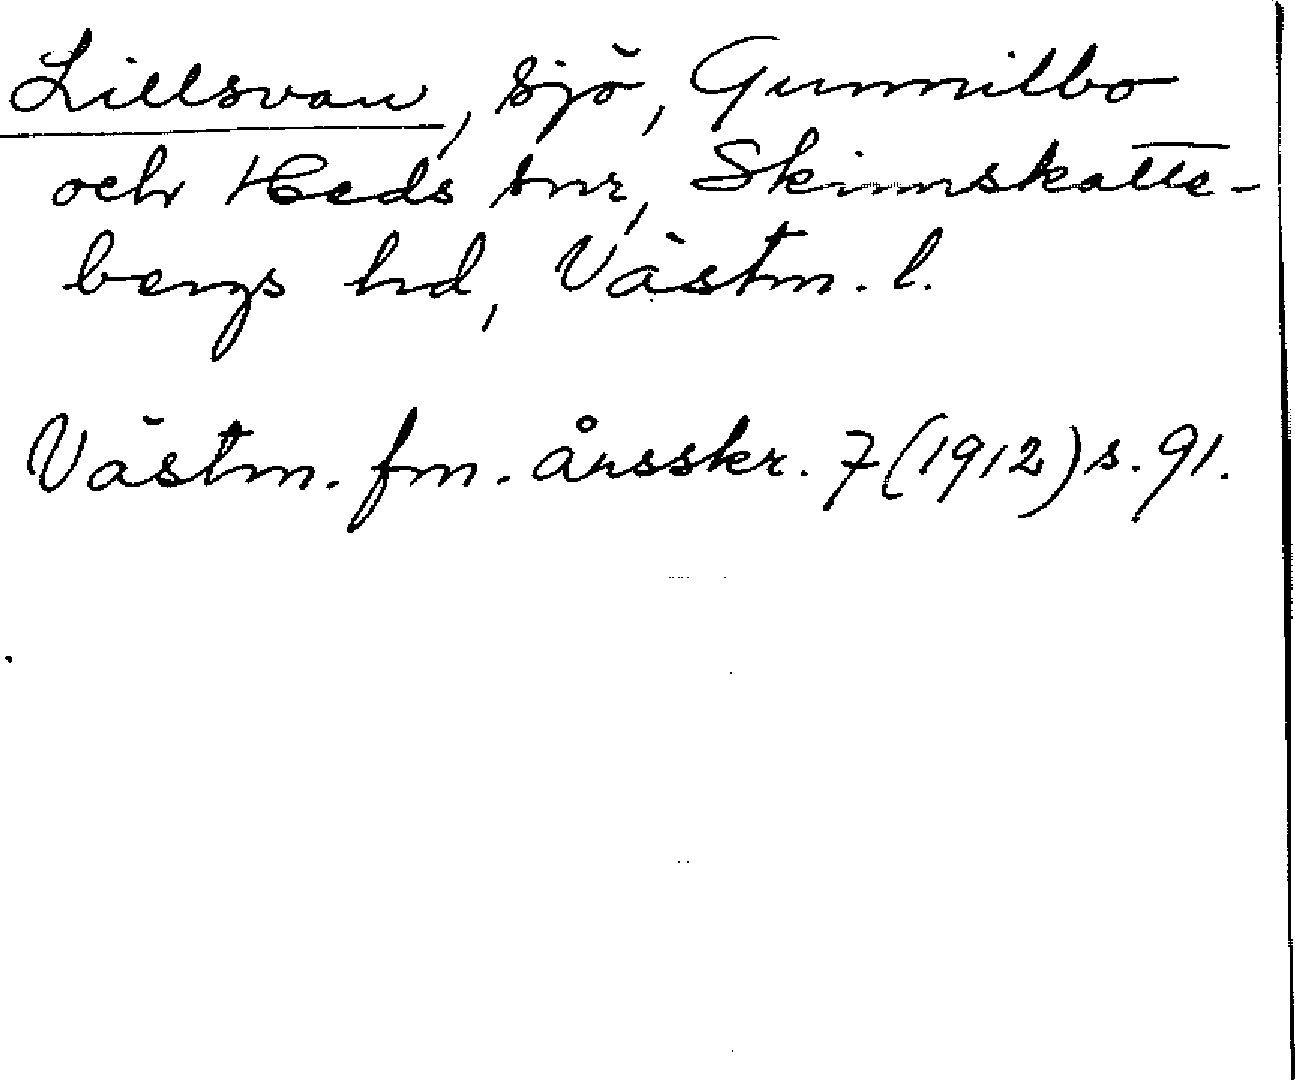 Lillsvan, sjö, Gunnilbo
och Heds snr, Skinnskatte-
bergs hd, Västm. l.
Västm. fm. årsskr. 7 (1912) s. 91.